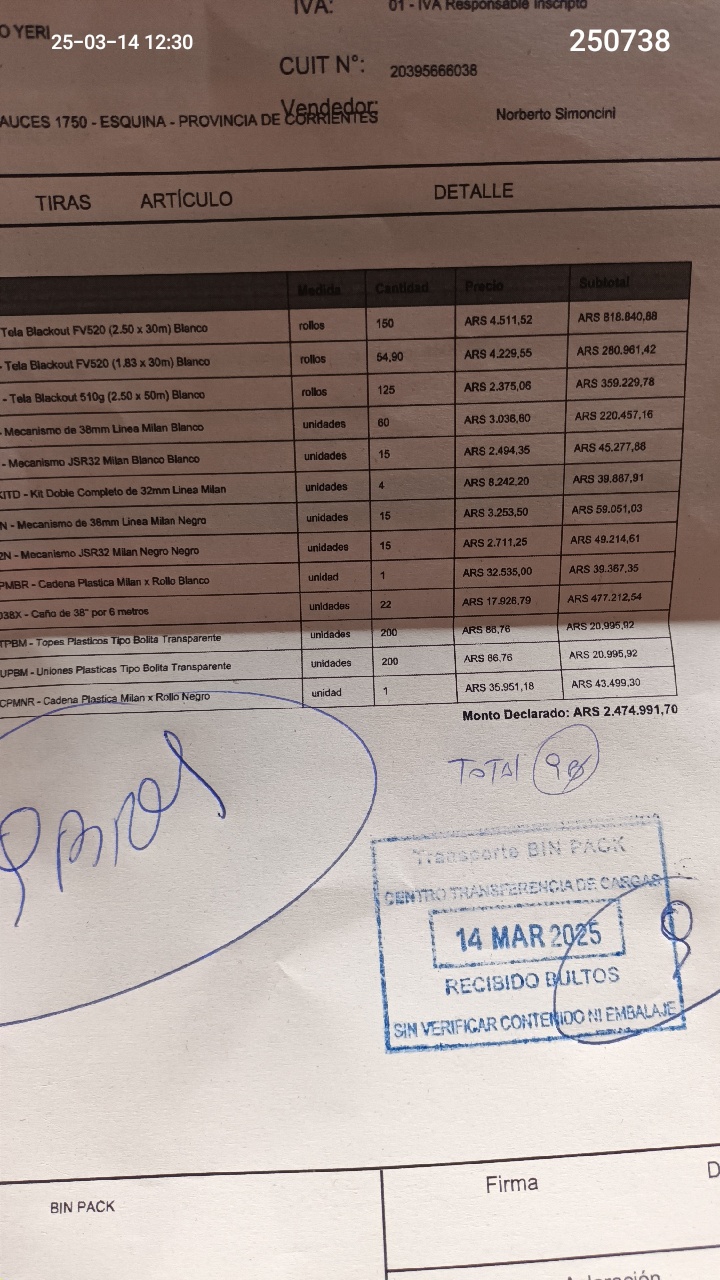 IVA: 01 - IVA Responsable Inscripto
O YERI
25-03-14 12:30
250738
CUIT N°: 20395666038
Vendedor: Norberto Simoncini
AUCES 1750 - ESQUINA - PROVINCIA DE CORRIENTES
TIRAS ARTÍCULO DETALLE
Medida Cantidad Precio Subtotal
Tela Blackout FV520 (2.50 x 30m) Blanco rollos 150 ARS 4.511,52 ARS 818.840,88
- Tela Blackout FV520 (1.83 x 30m) Blanco rollos 54,90 ARS 4.229,55 ARS 280.961,42
- Tela Blackout 510g (2.50 x 50m) Blanco rollos 125 ARS 2.375,06 ARS 359.229,78
- Mecanismo de 38mm Linea Milan Blanco unidades 60 ARS 3.036,60 ARS 220.457,16
- Mecanismo JSR32 Milan Blanco Blanco unidades 15 ARS 2.494,35 ARS 45.277,86
KITD - Kit Doble Completo de 32mm Linea Milan unidades 4 ARS 8.242,20 ARS 39.887,91
N - Mecanismo de 38mm Linea Milan Negro unidades 15 ARS 3.253,50 ARS 59.051,03
2N - Mecanismo JSR32 Milan Negro Negro unidades 15 ARS 2.711,25 ARS 49.214,61
PMBR - Cadena Plastica Milan x Rollo Blanco unidad 1 ARS 32.535,00 ARS 39.367,35
038X - Caño de 38" por 6 metros unidades 22 ARS 17.926,79 ARS 477.212,54
TPBM - Topes Plasticos Tipo Bolita Transparente unidades 200 ARS 86,76 ARS 20.995,92
UPBM - Uniones Plasticas Tipo Bolita Transparente unidades 200 ARS 86,76 ARS 20.995,92
CPMNR - Cadena Plastica Milan x Rollo Negro unidad 1 ARS 35.951,18 ARS 43.499,30
Monto Declarado: ARS 2.474.991,70
TOTAL
Transporte BIN PACK
CENTRO TRANSFERENCIA DE CARGAS
14 MAR 2025
RECIBIDO BULTOS
SIN VERIFICAR CONTENIDO NI EMBALAJE
BIN PACK
Firma
D
Aclaración